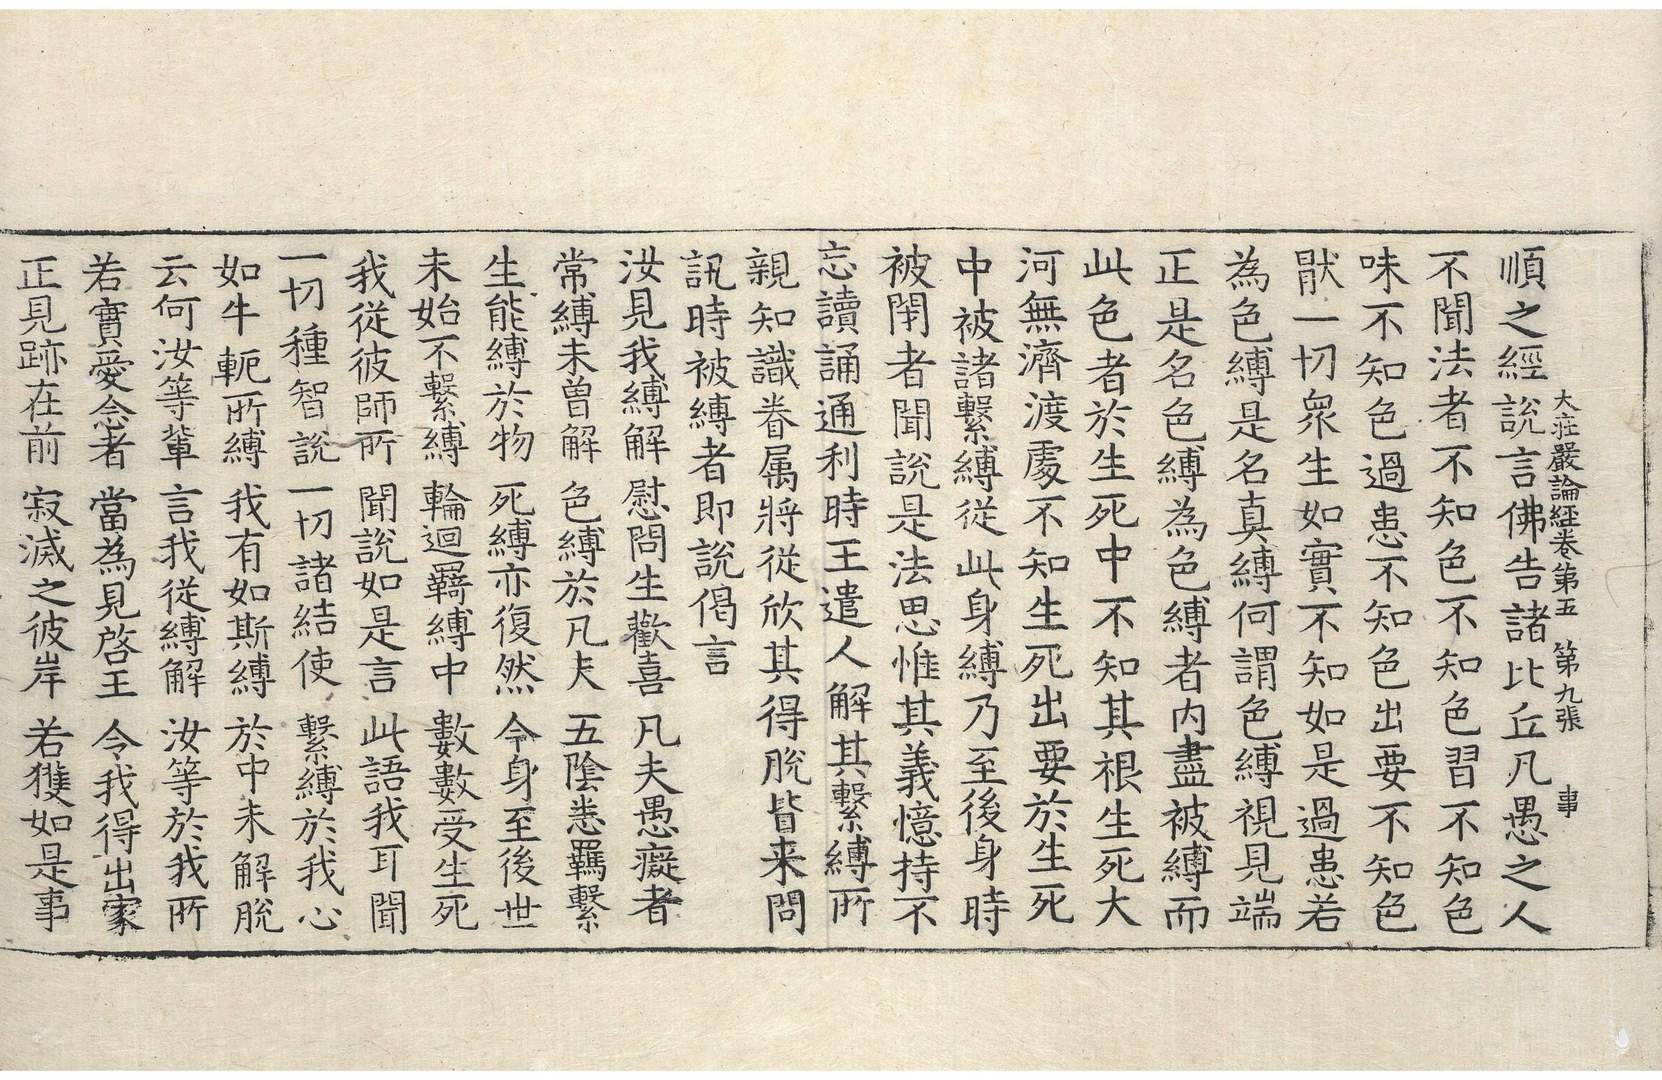 大莊嚴論經卷第五　第九張　事
順之經說言佛告諸比丘凡愚之人
不聞法者不知色不知色習不知色
味不知色過患不知色出要不知色
猒一切衆生如實不知如是過患若
為色縛是名真縛何謂色縛視見端
正是名色縛為色縛者內盡被縛而
此色者於生死中不知其根生死大
河無濟渡處不知生死出要於生死
中被諸繫縛從此身縛乃至後身時
被閇者聞說是法思惟其義憶持不
忘讀誦通利時王遣人解其繫縛所
親知識眷属將從欣其得脫皆来問
訊時被縛者即說偈言
汝見我縛解　慰問生歡喜　凡夫愚癡者
常縛未曾解　色縛於凡夫　五陰悉羈繫
生能縛於物　死縛亦復然　今身至後世
未始不繫縛　輪迴羇縛中　數數受生死
我從彼師所　聞說如是言　此語我耳聞
一切種智說　一切諸結使　繫縛於我心
如牛軛所縛　我有如斯縛　於中未解脫
云何汝等輩　言我從縛解　汝等於我所
若實愛念者　當為見啓王　令我得出家
正見跡在前　寂滅之彼岸　若獲如是事